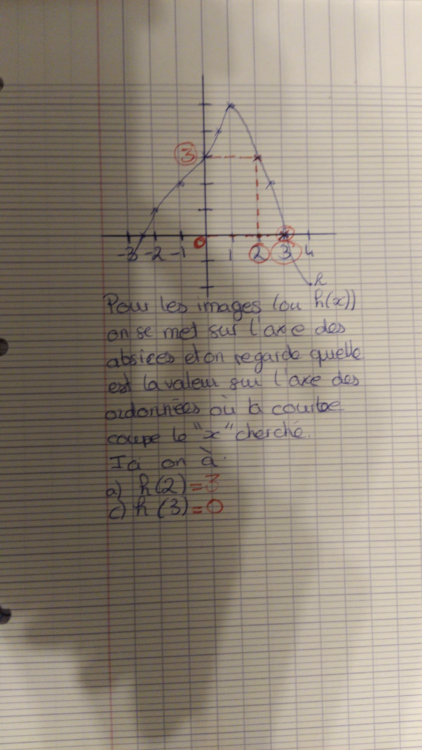 3
0
-3 -2 -1 1 2 3 4
h
Pour les images (ou h(x))
on se met sur l'axe des
absices et on regarde quelle
est la valeur sur l'axe des
ordonnées où la courbe
coupe le "x" cherché.
Ici on à
a) h(2)=3
c) h(3)=0